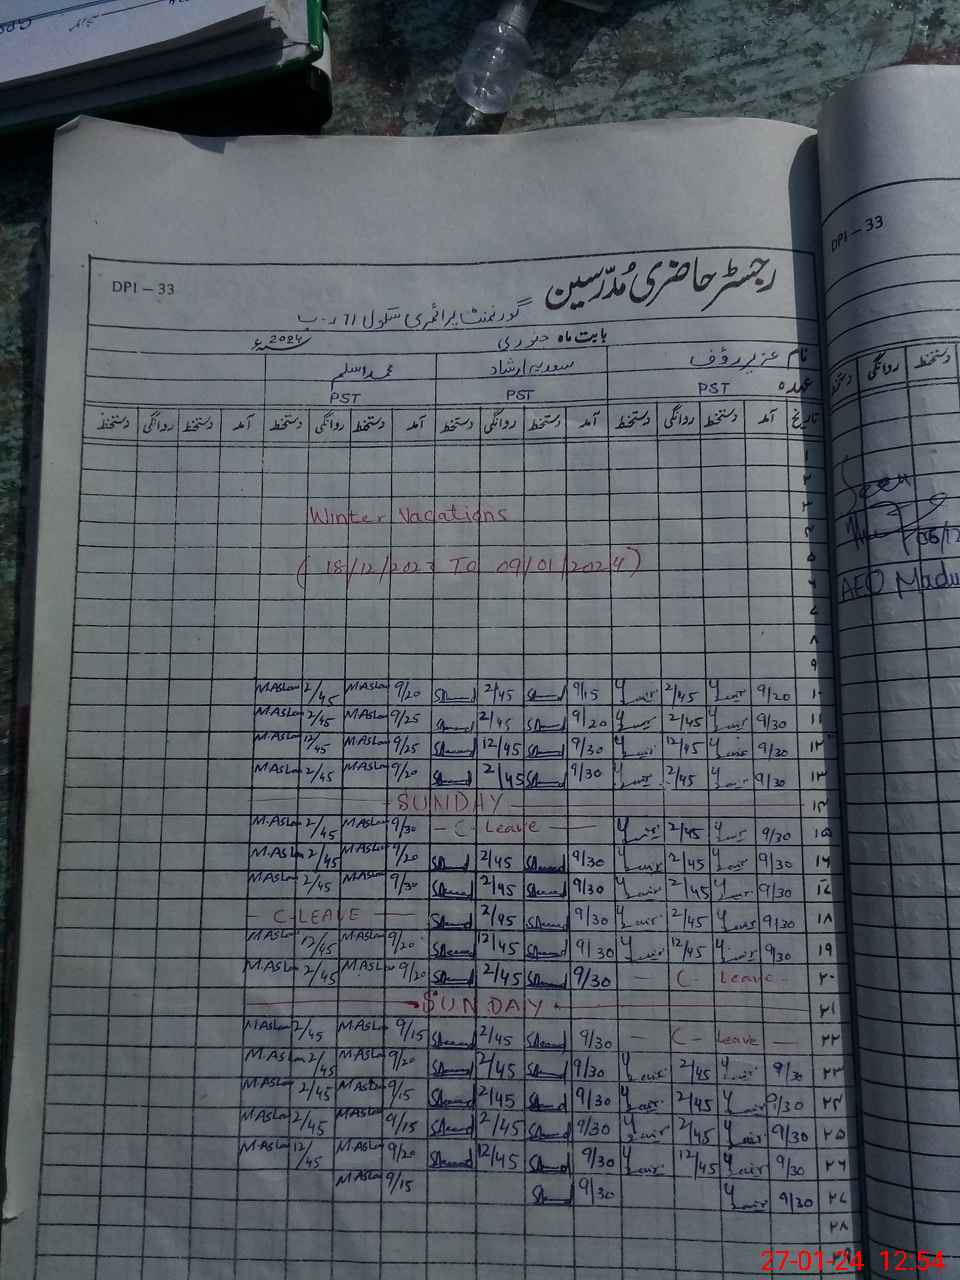 DPI – 33
رجسٹر حاضری مُدرّسین
گورنمنٹ پرائمری سکول 71 ر-ب
بابت ماہ جنوری 2024ء
نام عزیر رؤف سعدیہ ارشاد محمد اسلم
عہدہ PST PST PST
تاریخ آمد دستخط روانگی دستخط آمد دستخط روانگی دستخط آمد دستخط روانگی دستخط آمد دستخط روانگی دستخط
۱
۲
۳ Winter Vacations
۴
۵ ( 18/12/2023 To 09/01/2024 )
۶
۷
۸
۹
۱۰ 9/20 2/45 9/15 2/45 9/20 M.Aslam 2/45 M.Aslam
۱۱ 9/30 2/45 9/20 2/45 9/25 M.Aslam 2/45 M.Aslam
۱۲ 9/30 12/45 9/30 12/45 9/25 M.Aslam 12/45 M.Aslam
۱۳ 9/30 2/45 9/30 2/45 9/20 M.Aslam 2/45 M.Aslam
۱۴ SUNDAY
۱۵ 9/30 2/45 C-Leave 9/30 M.Aslam 2/45 M.Aslam
۱۶ 9/30 2/45 9/30 2/45 9/20 M.Aslam 2/45 M.Aslam
۱۷ 9/30 2/45 9/30 2/45 9/30 M.Aslam 2/45 M.Aslam
۱۸ 9/30 2/45 9/30 2/45 C-LEAVE
۱۹ 9/30 12/45 9/30 12/45 9/20 M.Aslam 12/45 M.Aslam
۲۰ C-Leave 9/30 2/45 9/20 M.Aslam 2/45 M.Aslam
۲۱ SUNDAY
۲۲ C-Leave 9/30 2/45 9/15 M.Aslam 2/45 M.Aslam
۲۳ 9/30 2/45 9/30 2/45 9/20 M.Aslam 2/45 M.Aslam
۲۴ 9/30 2/45 9/30 2/45 9/15 M.Aslam 2/45 M.Aslam
۲۵ 9/30 2/45 9/30 2/45 9/15 M.Aslam 2/45 M.Aslam
۲۶ 9/30 12/45 9/30 12/45 9/20 M.Aslam 12/45 M.Aslam
۲۷ 9/30 9/30 9/15 M.Aslam
۲۸
۲۹
DPI – 33
دستخط روانگی دستخط
Seen
05/12
AEO
27-01-24 12:54